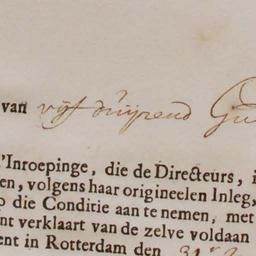 van vijf duijzend Gu
'Inroepinge, die de Directeurs, i
en, volgens haar origineelen Inleg,
p die Conditie aan te nemen, met
nt verklaart van de zelve voldaan
ent in Rotterdam den 31